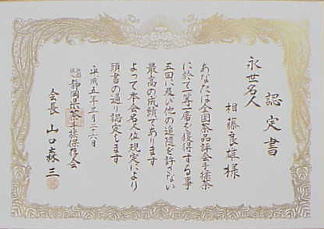 認定書
永世名人
相藤良雄様
あなたは全国茶品評会手揉茶
に於て一等一席を獲得する事
三回に及び他の追随を許さない
最高の成績であります
よって本会名人位規定により
頭書の通り認定します
平成五年二月二十六日
静岡県茶手揉保存会
会長 山口森三